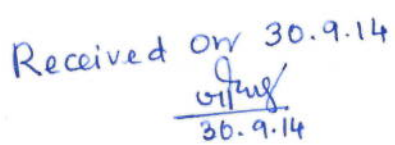 Received on 30.9.14
30.9.14